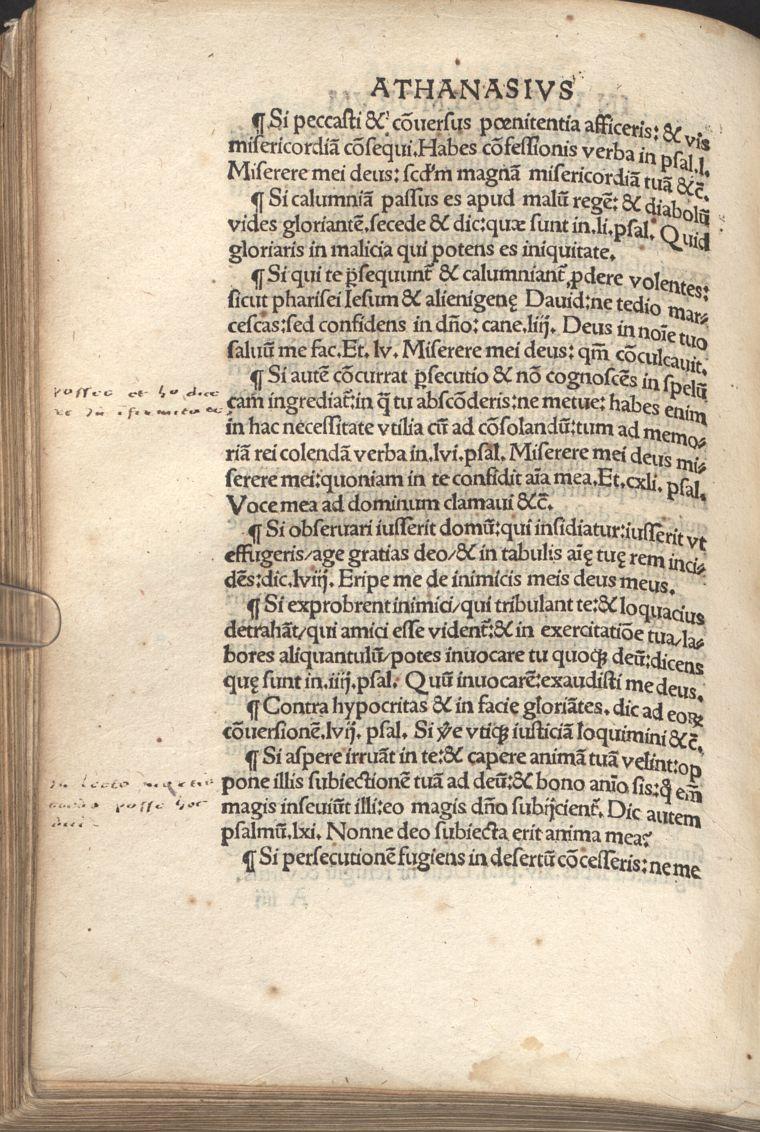 ATHANASIVS
¶ Si peccasti & cõuersus pœnitentia afficeris: & vis
misericordiã cõsequi. Habes cõfessionis verba in psal. l.
Miserere mei deus: scďm magnã misericordiã tuã &c̃.
¶ Si calumniã passus es apud malũ regẽ: & diabolũ
vides gloriantẽ, secede & dic: quæ sunt in. li. psal. Quid
gloriaris in malicia qui potens es iniquitate.
¶ Si qui te p̃sequunt̃ & calumniant̃, ꝓdere volentes:
sicut pharisei Iesum & alienigenę Dauid: ne tedio mar⸗
cescas: sed confidens in dño: cane. liij. Deus in noĩe tuo
saluũ me fac. Et. lv. Miserere mei deus: qm̃ cõculcauit.
¶ Si autẽ cõcurrat p̃secutio & nõ cognoscẽs in spelũ
cam ingrediat̃: in q̃ tu abscõderis: ne metue: habes enim
in hac necessitate vtilia cũ ad cõsolandũ: tum ad memo⸗
riã rei colendã verba in. lvi. psal. Miserere mei deus mi⸗
serere mei: quoniam in te confidit aĩa mea. Et. cxli. psal.
Voce mea ad dominum clamaui &c̃.
¶ Si obseruari iusserit domũ: qui insidiatur: iusserit vt
effugeris/ age gratias deo/ & in tabulis aię tuę rem inci⸗
dẽs: dic. lviij. Eripe me de inimicis meis deus meus.
¶ Si exprobrent inimici/ qui tribulant te: & loquacius
detrahãt/ qui amici esse vident̃: & in exercitatiõe tua/ la⸗
bores aliquantulũ/ potes inuocare tu quoqꝫ deũ: dicens
quę sunt in. iiij. psal. Quũ inuocarẽ: exaudisti me deus.
¶ Contra hypocritas & in facie gloriãtes, dic ad eoꝝ
cõuersionẽ. lvij. psal. Si ṽe vtiqꝫ iusticiã loquimini &c̃.
¶ Si aspere irruãt in te: & capere animã tuã velint: op
pone illis subiectionẽ tuã ad deũ: & bono anĩo sis: q̃ em̃
magis inseuiũt illi: eo magis dño subijcient̃. Dic autem
psalmũ. lxi. Nonne deo subiecta erit anima mea?
¶ Si persecutionẽ fugiens in desertũ cõcesseris: ne me